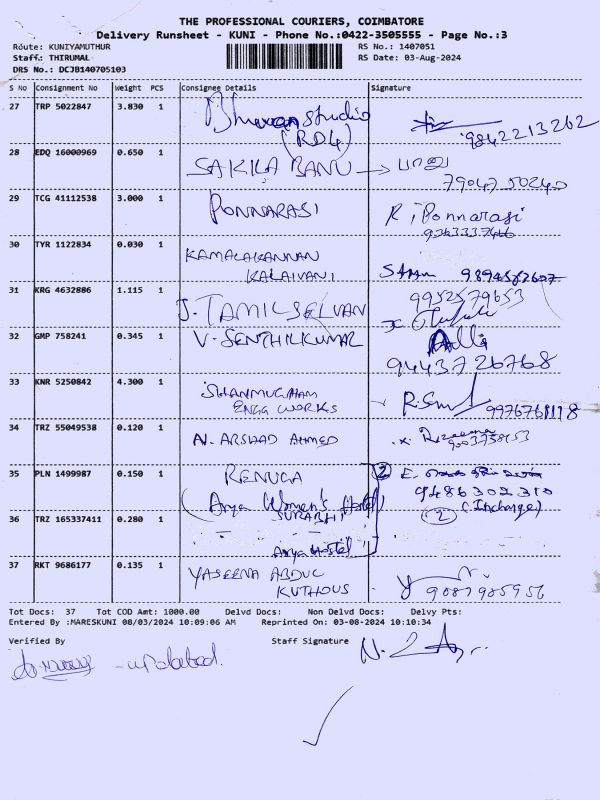 THE PROFESSIONAL COURIERS, COIMBATORE
Delivery Runsheet - KUNI - Phone No.:0422-3505555 - Page No.:3
Route: KUNIYAMUTHUR RS No.: 1407051
Staff: THIRUMAL RS Date: 03-Aug-2024
DRS No.: DCJB140705103
S No Consignment No Weight PCS Consignee Details Signature
27 TRP 5022847 3.830 1 Bhuvan Studio
(RD4) 9842213262
28 EDQ 16000969 0.650 1 SAKILA BANU → பானு
79047 50240
29 TCG 41112538 3.000 1 PONNARASI R. Ponnarasi
30 TYR 1122834 0.030 1 KAMALAKANNAN
KALAIVANI 9894582607
31 KRG 4632886 1.115 1 J. TAMILSELVAN 9952579653
32 GMP 758241 0.345 1 V. SENTHILKUMAR
9443726768
33 KNR 5250842 4.300 1 SHANMUGHAM
ENGG WORKS
34 TRZ 55049538 0.120 1 N. ARSHAD AHMED
35 PLN 1499987 0.150 1 RENUGA (2) E.
(Arya Women's Hostel) 9486302310
36 TRZ 165337411 0.280 1 SURABHI (2) (Incharge)
Arya Hostel
37 RKT 9686177 0.135 1 YASEENA ABDUL
KUTHOUS
Tot Docs: 37 Tot COD Amt: 1000.00 Delvd Docs: Non Delvd Docs: Delvy Pts:
Entered By :MARESKUNI 08/03/2024 10:09:06 AM Reprinted On: 03-08-2024 10:10:34
Verified By Staff Signature
- updated.